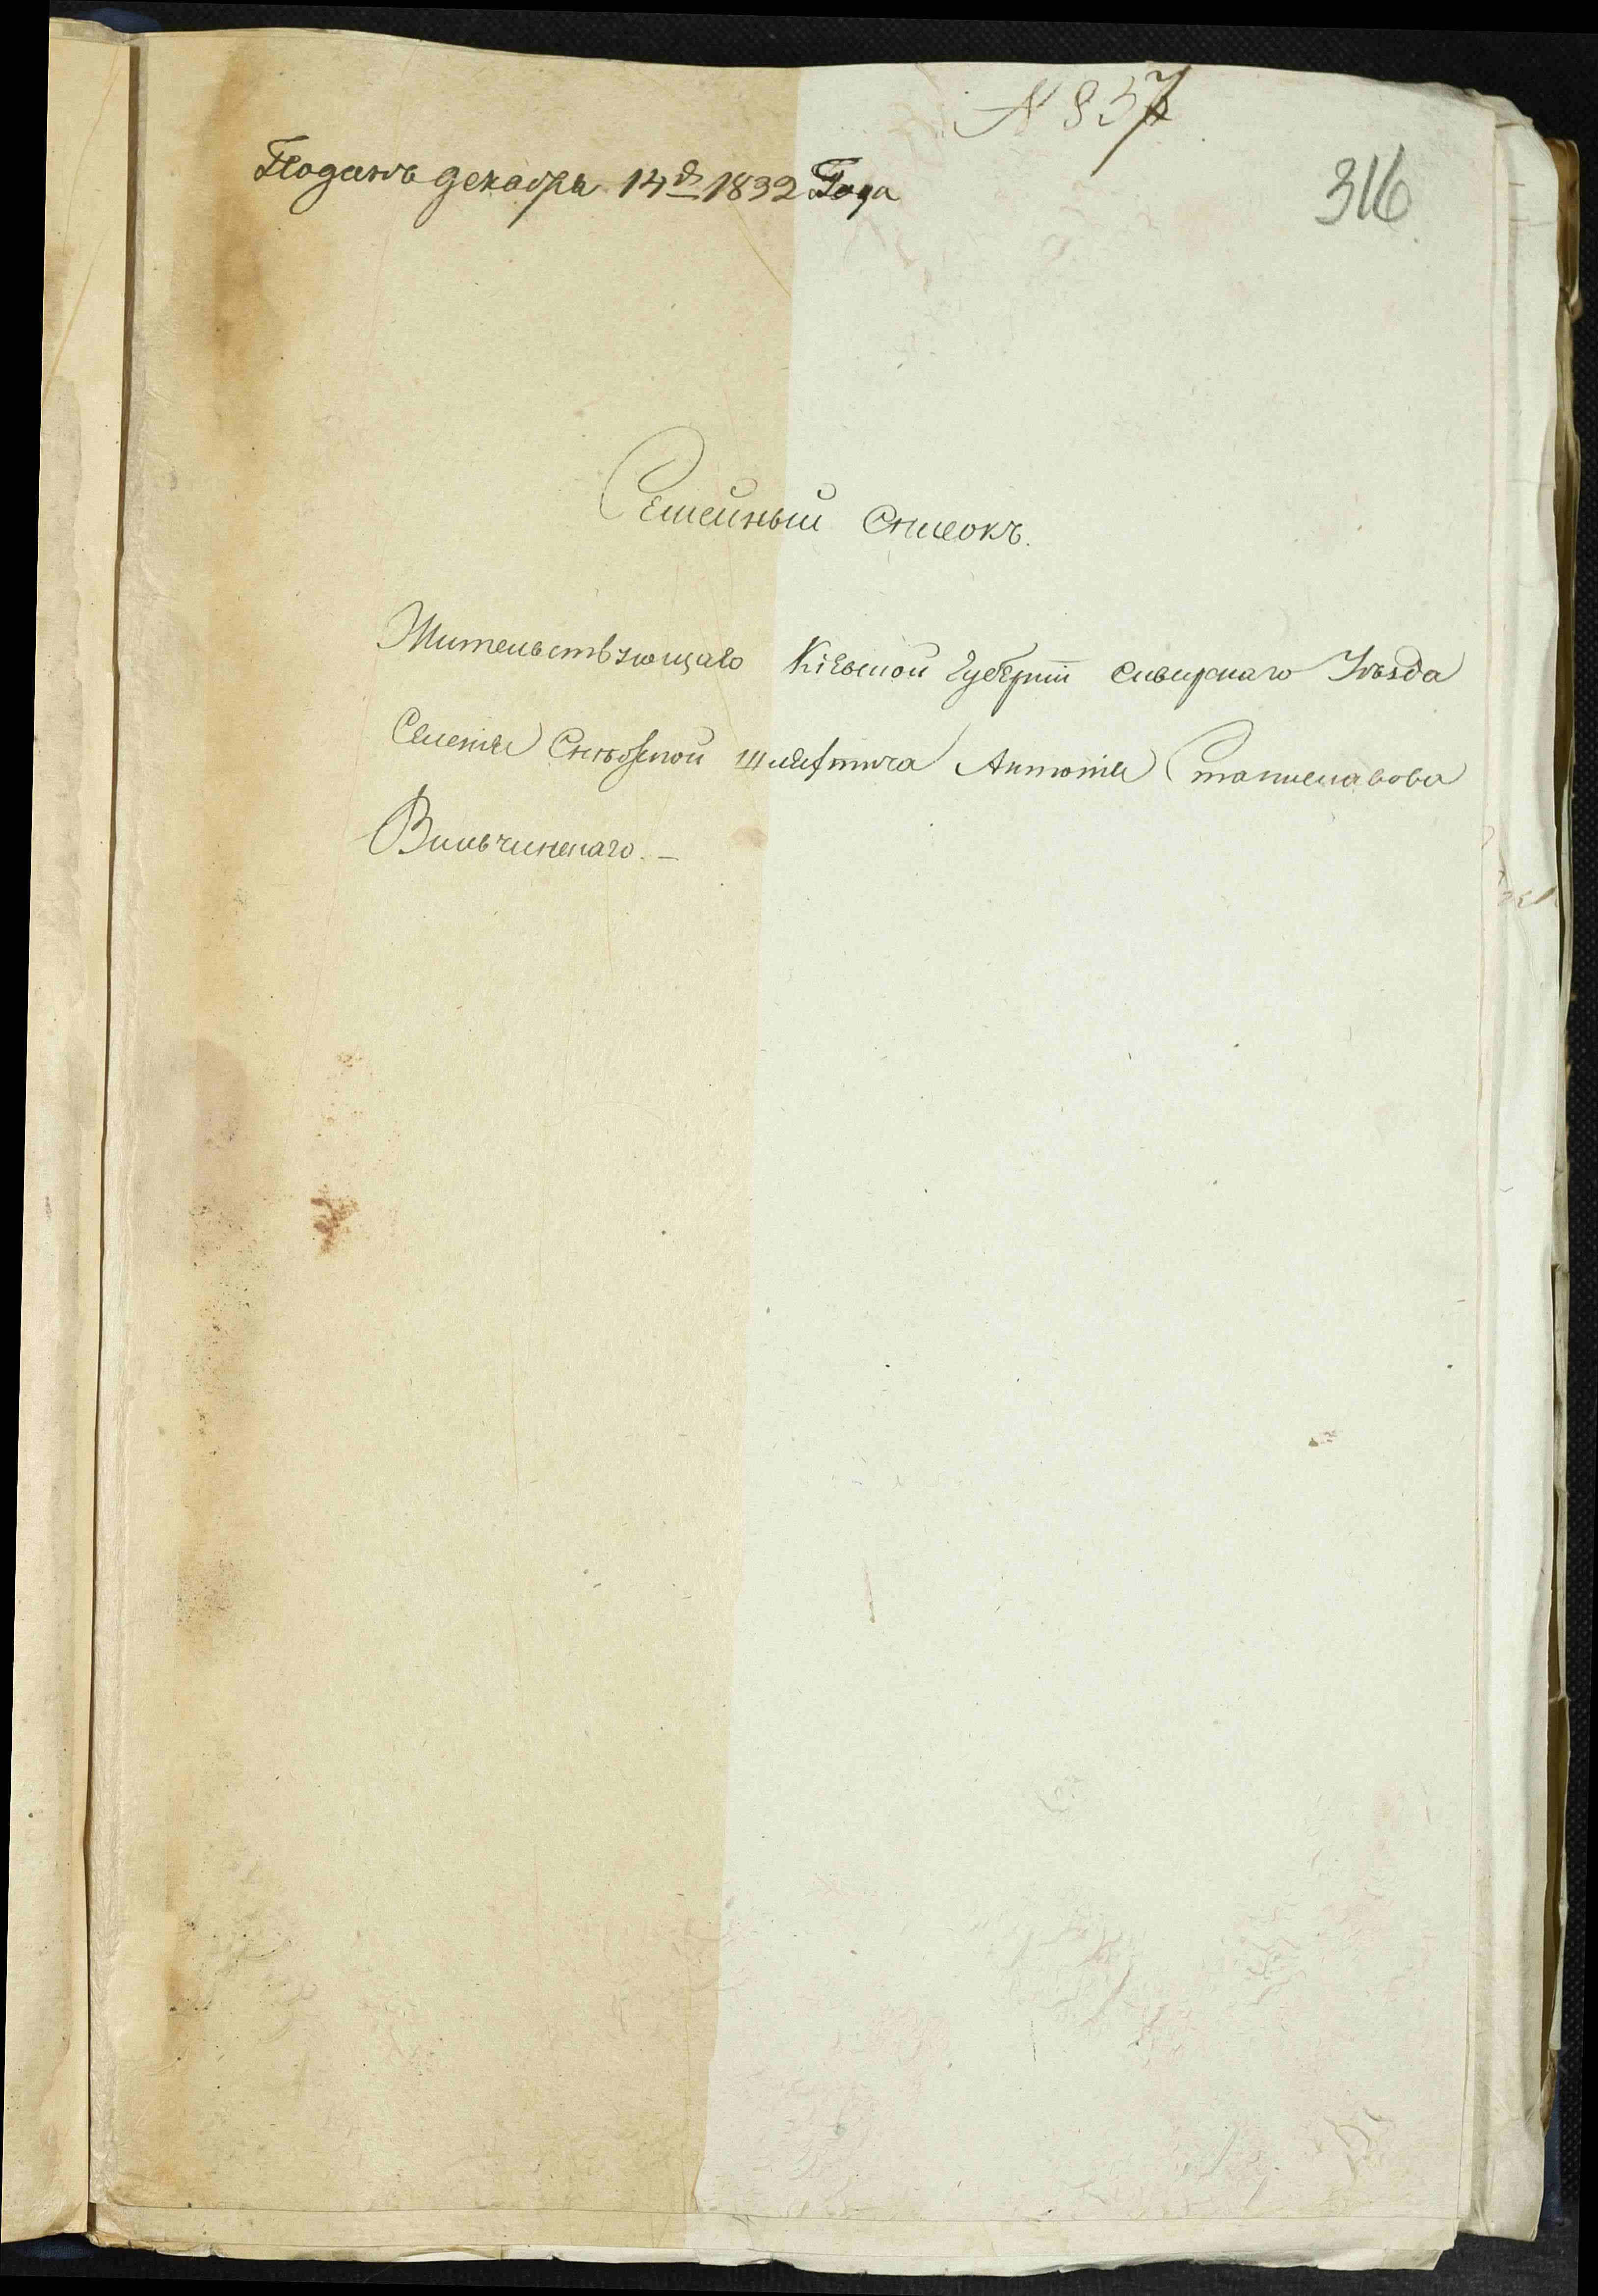 N 857
Поданъ декабря 14 д 1832 Года
316
Семейный Списокъ.
Жительствующаго Кіевской Губерніи Сквирскаго Уѣзда
Селенія шляхтича Антонія Станиславова
Вильчинскаго. –